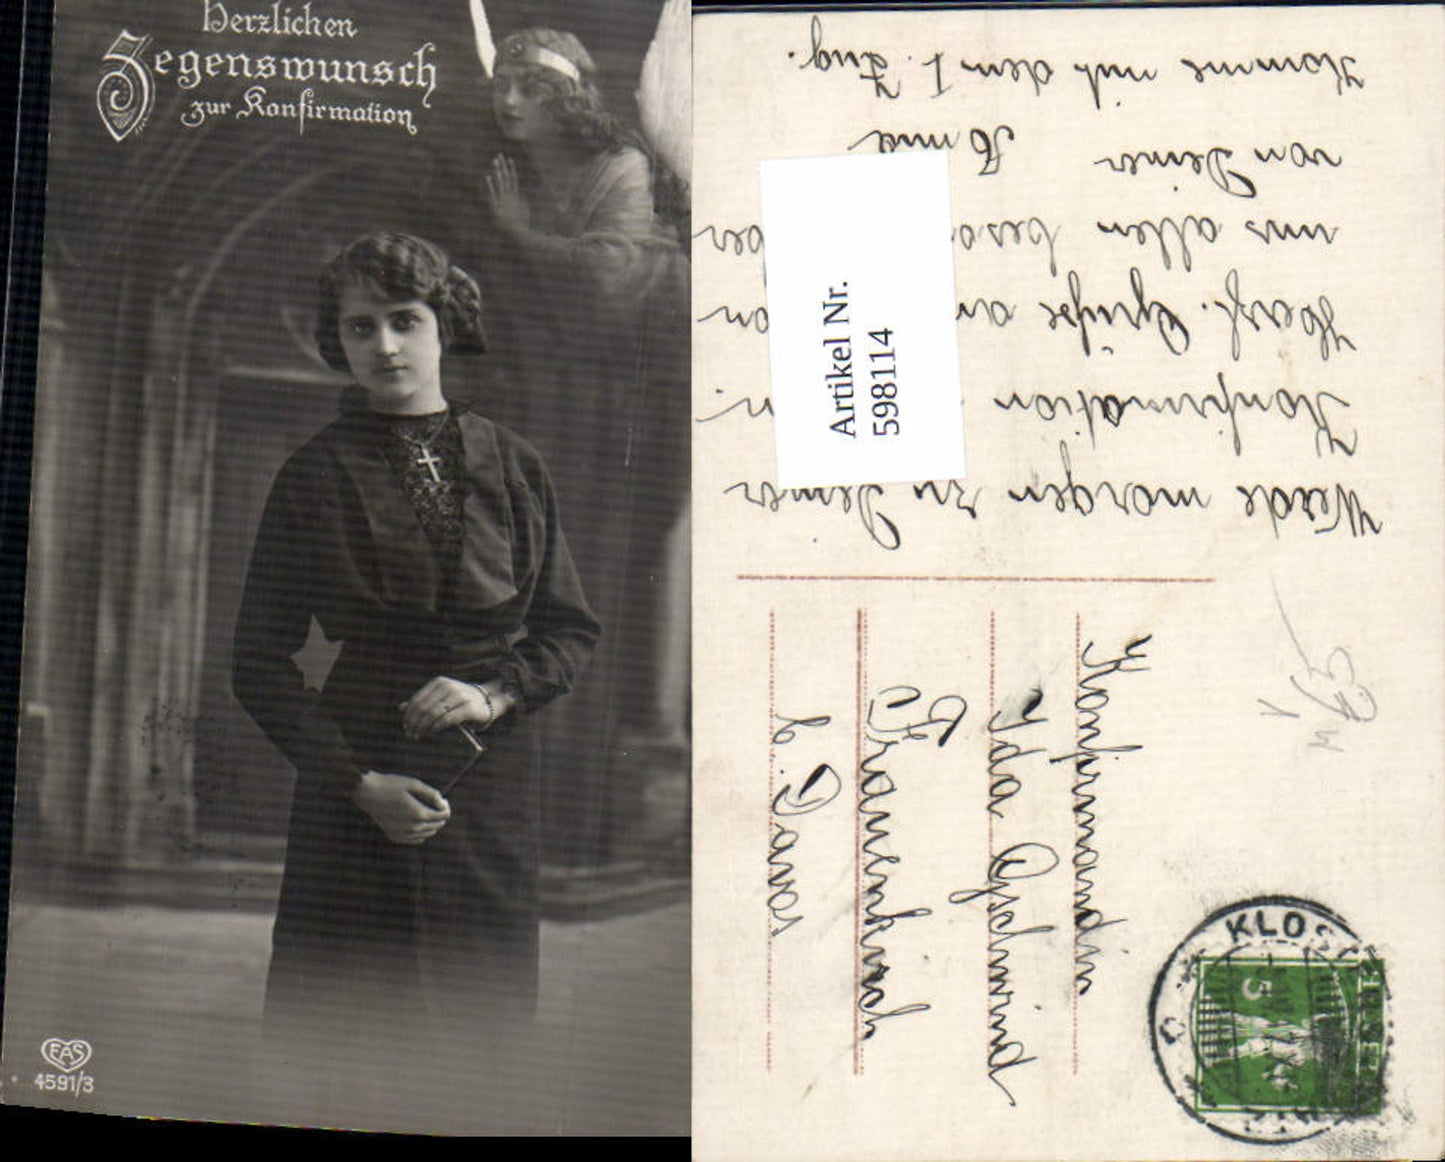 Herzlichen
Segenswunsch
zur Konfirmation
EAS
4591/3
Werde morgen zu Deiner
Konfirmation
Herzl. Grüße an
uns allen beson
von Deiner
Komme mit dem 1. Zug.
Artikel Nr.
598114
Konfirmandin
Ida Gschwind
Frauenkirch
b. Davos
KLOST
5